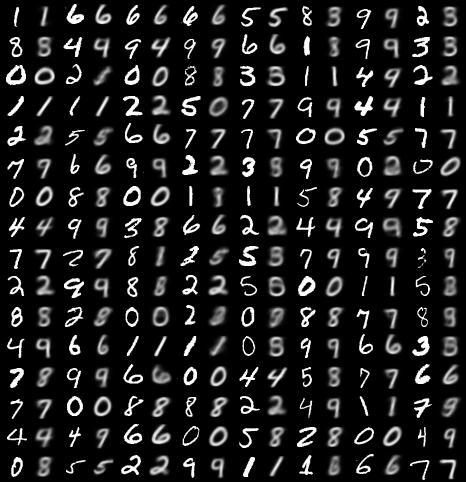 1 1 6 6 6 6 6 6 5 5 8 3 9 9 2 3
8 8 4 9 9 4 9 9 6 6 1 8 9 9 3 3
0 0 2 8 0 0 8 8 3 3 1 1 4 9 2 2
1 1 1 1 2 2 5 0 7 7 9 9 4 4 1 1
2 2 5 5 6 6 7 7 7 7 0 0 5 5 7 7
7 9 6 6 9 9 2 2 3 8 9 9 0 2 0 0
0 0 8 8 0 0 1 8 1 1 5 8 4 9 7 7
4 4 9 9 3 8 6 6 2 2 4 4 9 9 5 8
7 7 2 7 8 1 2 5 5 3 7 9 9 9 3 9
2 2 9 9 8 8 2 2 5 5 0 0 1 1 5 8
8 8 2 8 0 0 2 8 0 8 8 8 7 7 8 8
4 9 6 6 1 1 1 1 0 8 9 9 6 6 3 8
7 8 9 9 6 6 0 0 4 4 5 8 7 7 6 6
7 7 0 0 8 8 8 8 2 2 4 9 1 1 7 9
4 4 4 9 6 6 0 0 5 8 2 8 0 0 4 9
0 8 5 5 2 2 9 9 1 1 1 8 6 6 7 7